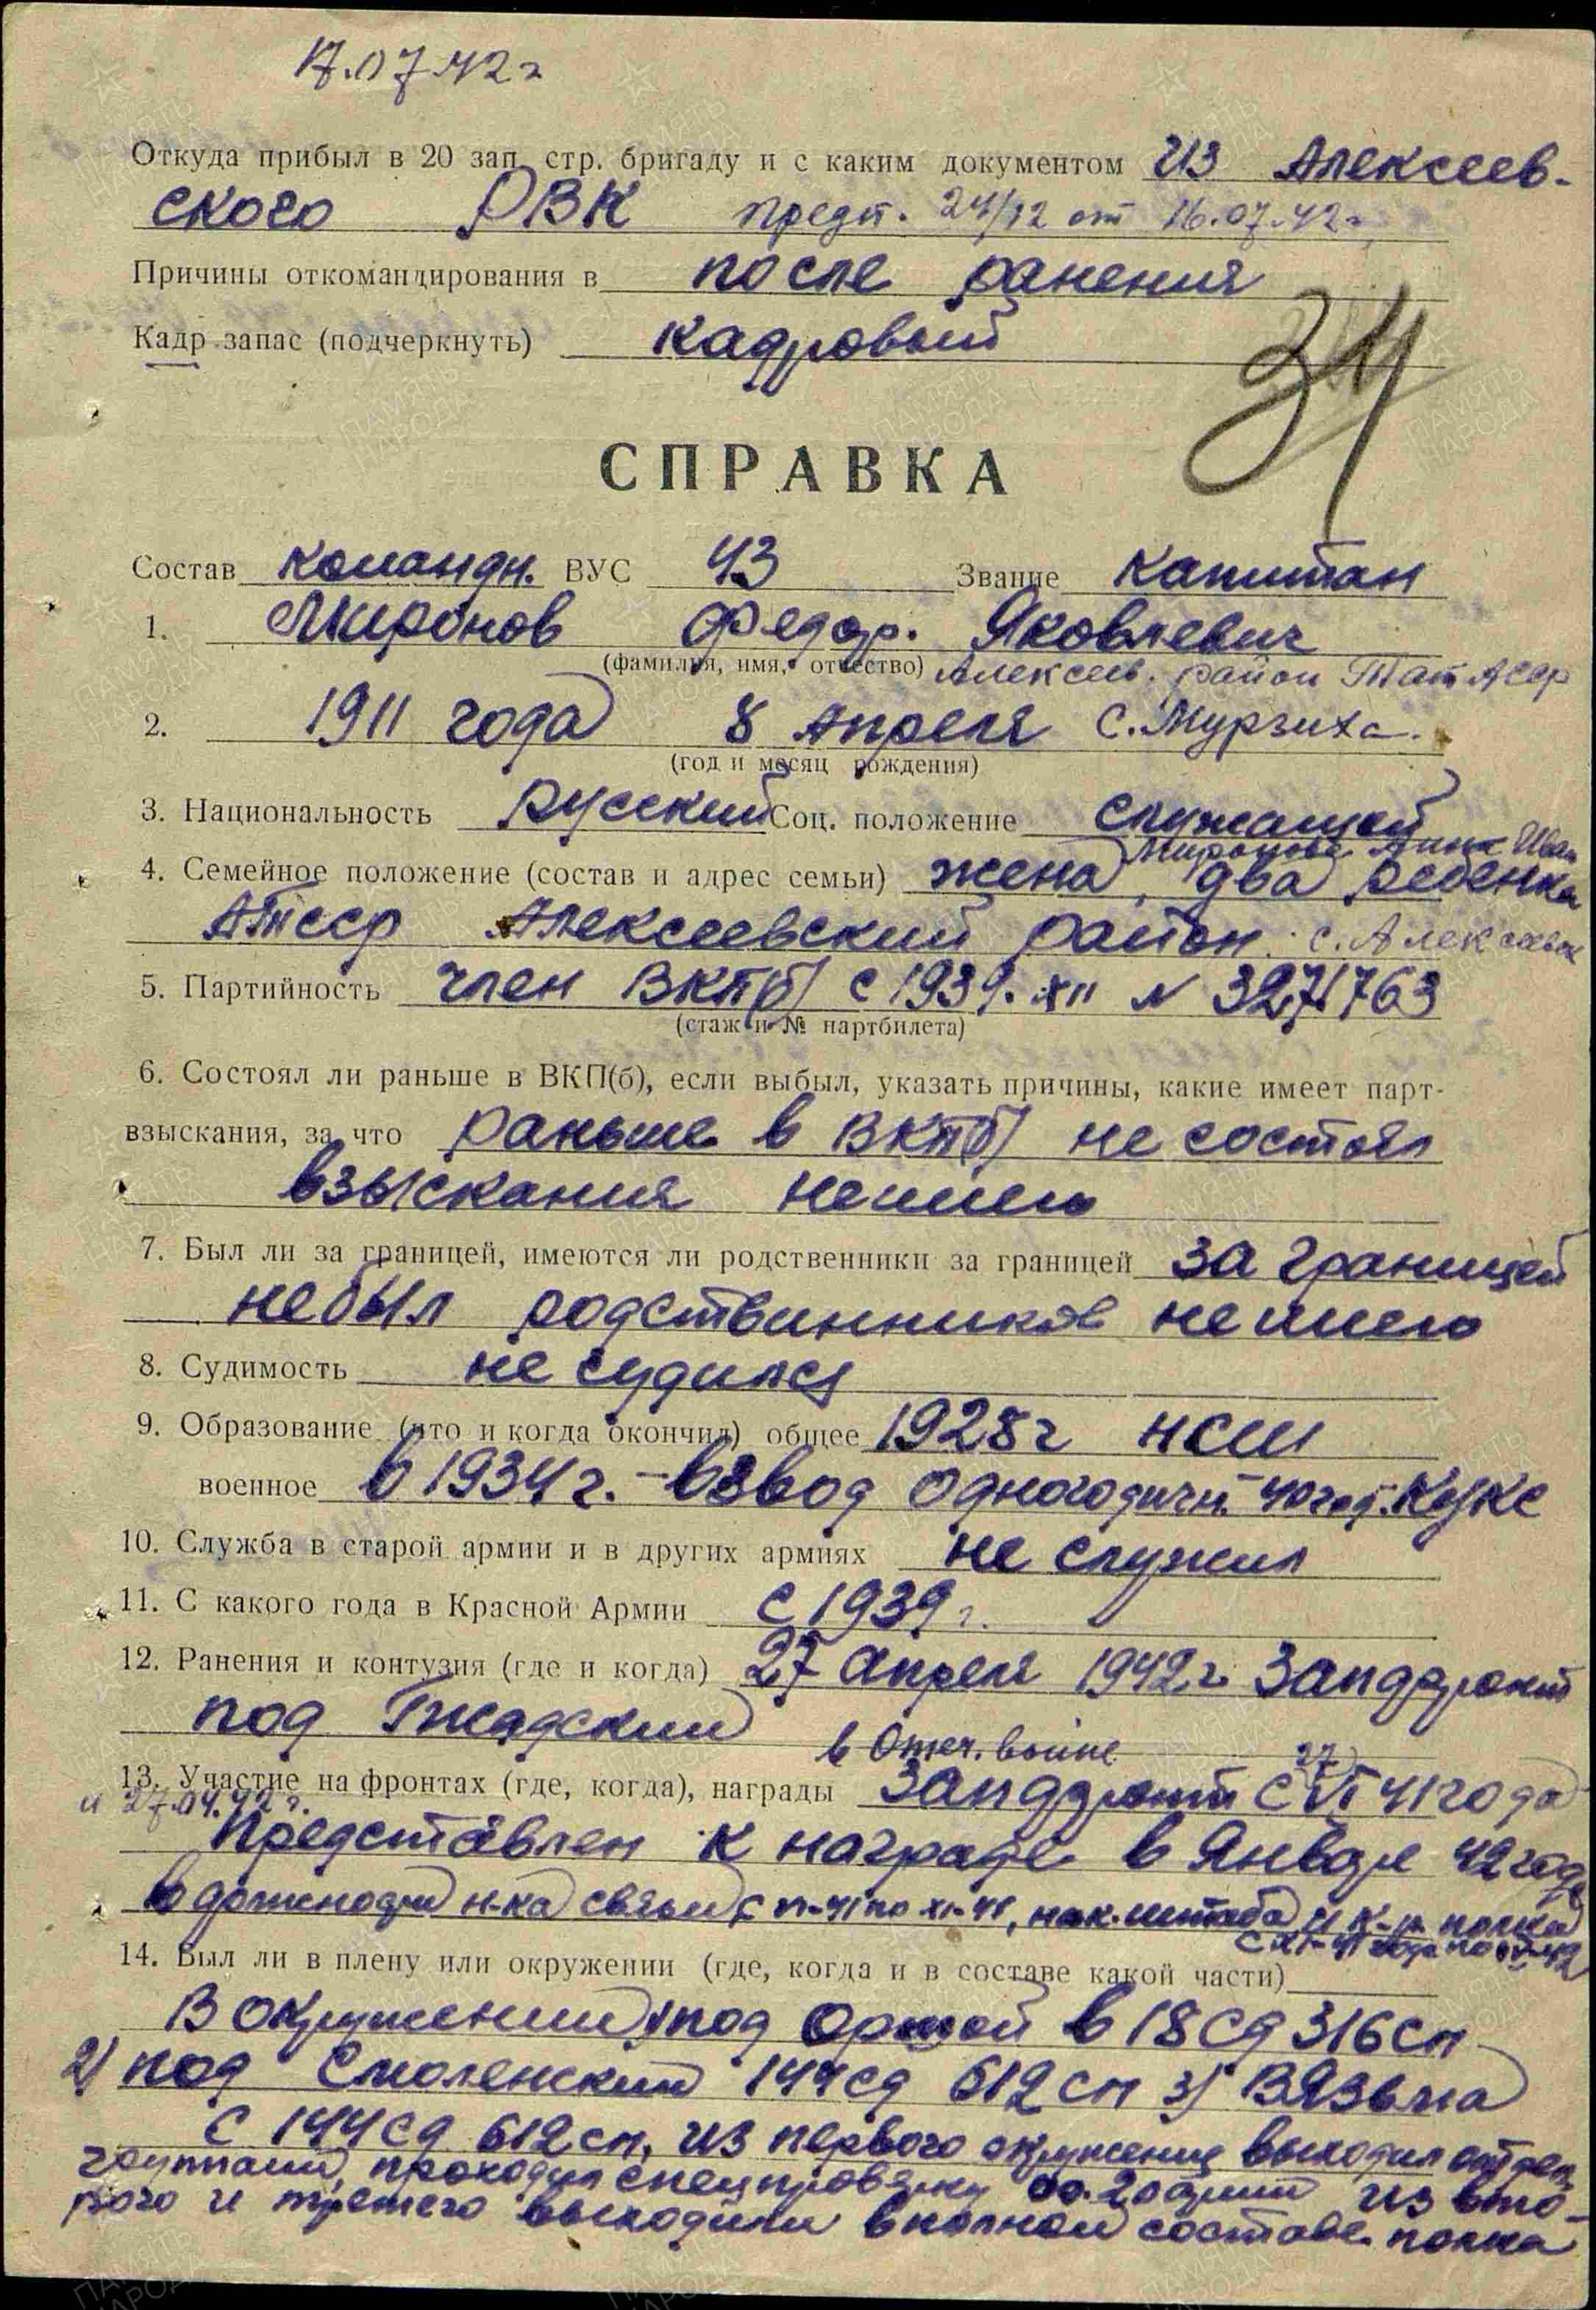 17.07.42 г
Откуда прибыл в 20 зап. стр. бригаду и с каким документом из Алексеев-
ского РВК предп. 24/12 от 16.07.42 г.
Причины откомандирования в после ранения
Кадр запас (подчеркнуть) кадровый
34
СПРАВКА
Состав командн. ВУС 43 Звание капитан
1. Миронов Федор. Яковлевич
(фамилия, имя, отчество) Алексеев. район ТатАССР
2. 1911 года 8 Апреля с. Мурзиха.
(год и месяц рождения)
3. Национальность русский Соц. положение служащий
Миронова Анна Иван
4. Семейное положение (состав и адрес семьи) жена, два ребенка
АТССР Алексеевский район. с. Алексеевск
5. Партийность член ВКП(б) с 1939. XII N 3271763
(стаж и № партбилета)
6. Состоял ли раньше в ВКП(б), если выбыл, указать причины, какие имеет парт-
взыскания, за что раньше в ВКП(б) не состоял
взыскания неимею
7. Был ли за границей, имеются ли родственники за границей за границей
небыл родственников неимею
8. Судимость не судился
9. Образование (что и когда окончил) общее 1928 г НСШ
военное в 1934 г. - взвод одногодичн. 40 год. КУКС
10. Служба в старой армии и в других армиях не служил
11. С какого года в Красной Армии с 1939 г.
12. Ранения и контузия (где и когда) 27 апреля 1942 г Запфронт
под Гжадский
в Отеч. войне
13. Участие на фронтах (где, когда), награды Запфронт с 27 VI 41 года
и 27.04.42 г.
Представлен к награде в Январе 42 года
в должности н-ка связи с VI-41 по XI-41, нач. штаба и к-р полка
с XI-41 года по IV-42
14. Был ли в плену или окружении (где, когда и в составе какой части)
В окружении 1) под Оршой в 18 сд 316 сп
2) под Смоленский 144 сд 612 сп 3) Вязьма
с 144 сд 612 сп. из первого окружение выходил отдел
группами, проходил спецпроверку 20 армии из вто-
рого и третьего выходили вполном составе полка